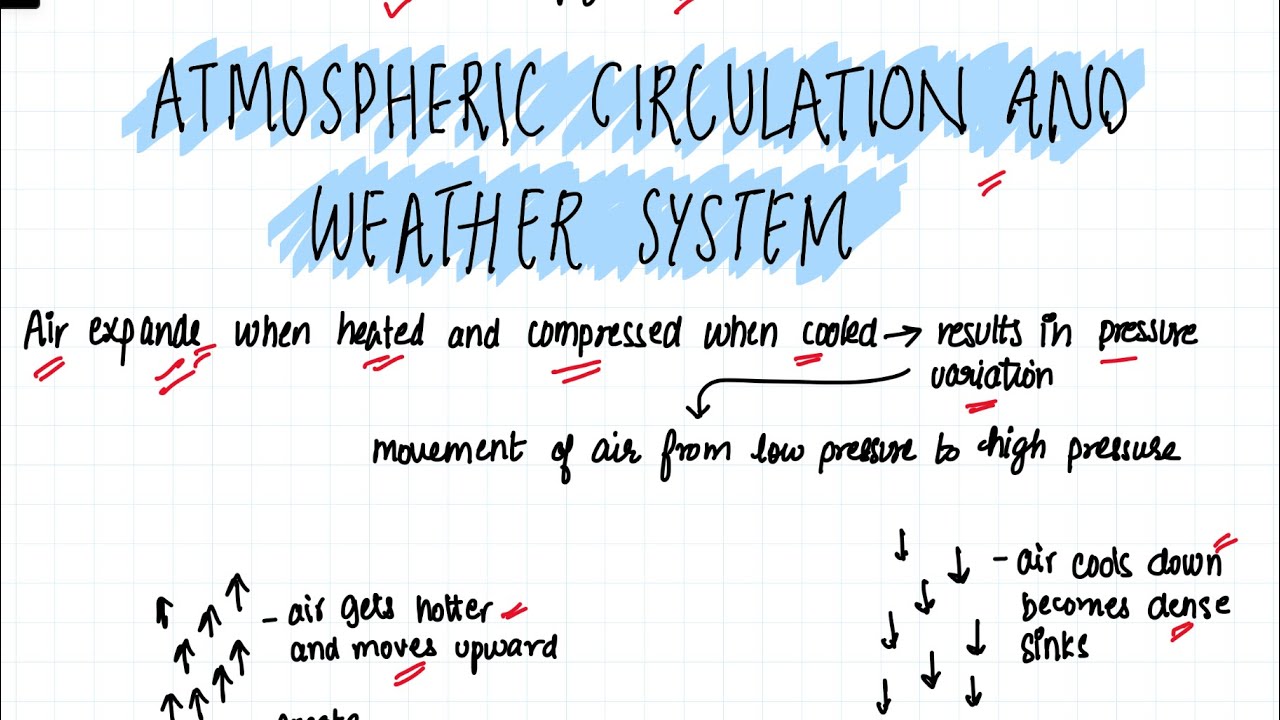 ATMOSPHERIC CIRCULATION AND
WEATHER SYSTEM
Air expands when heated and compressed when cooled → results in pressure
variation
movement of air from low pressure to high pressure
- air cools down
becomes dense
sinks
- air gets hotter
and moves upward